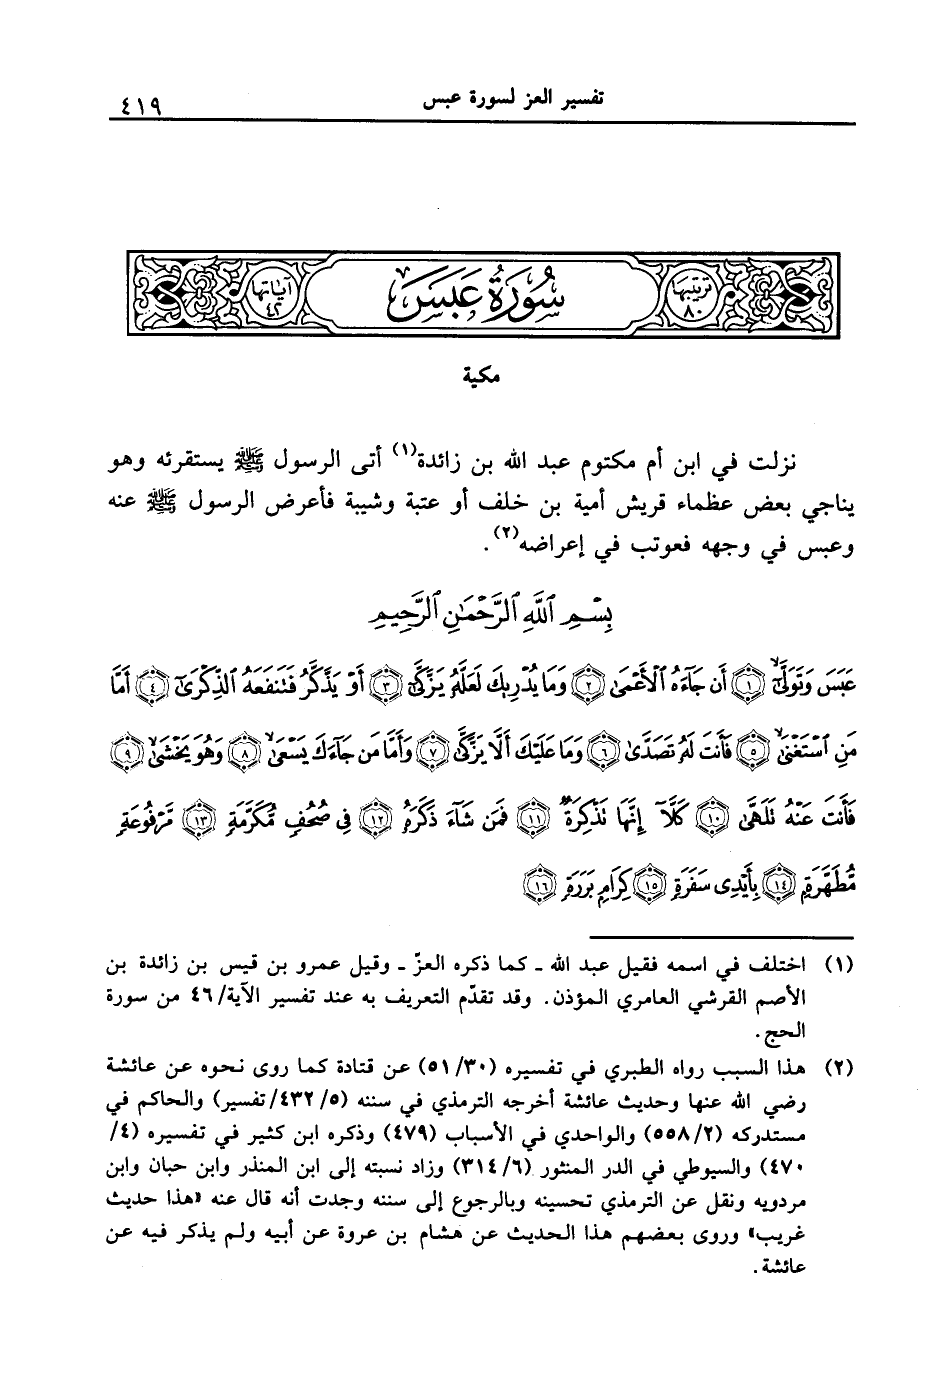 تفسير العز لسورة عبس ٤١٩
ترتيبها ٨٠ سُورَةُ عَبَسَ آياتها ٤٢
مكية
نزلت في ابن أم مكتوم عبد الله بن زائدة(١) أتى الرسول ﷺ يستقرئه وهو
يناجي بعض عظماء قريش أمية بن خلف أو عتبة وشيبة فأعرض الرسول ﷺ عنه
وعبس في وجهه فعوتب في إعراضه(٢).
بِسْمِ ٱللَّهِ ٱلرَّحْمَٰنِ ٱلرَّحِيمِ
عَبَسَ وَتَوَلَّىٰٓ ۝١ أَن جَآءَهُ ٱلْأَعْمَىٰ ۝٢ وَمَا يُدْرِيكَ لَعَلَّهُۥ يَزَّكَّىٰٓ ۝٣ أَوْ يَذَّكَّرُ فَتَنفَعَهُ ٱلذِّكْرَىٰٓ ۝٤ أَمَّا
مَنِ ٱسْتَغْنَىٰ ۝٥ فَأَنتَ لَهُۥ تَصَدَّىٰ ۝٦ وَمَا عَلَيْكَ أَلَّا يَزَّكَّىٰ ۝٧ وَأَمَّا مَن جَآءَكَ يَسْعَىٰ ۝٨ وَهُوَ يَخْشَىٰ ۝٩
فَأَنتَ عَنْهُ تَلَهَّىٰ ۝١٠ كَلَّآ إِنَّهَا تَذْكِرَةٌ ۝١١ فَمَن شَآءَ ذَكَرَهُۥ ۝١٢ فِى صُحُفٍ مُّكَرَّمَةٍ ۝١٣ مَّرْفُوعَةٍ
مُّطَهَّرَةٍۭ ۝١٤ بِأَيْدِى سَفَرَةٍ ۝١٥ كِرَامٍۭ بَرَرَةٍ ۝١٦
(١) اختلف في اسمه فقيل عبد الله ـ كما ذكره العزّ ـ وقيل عمرو بن قيس بن زائدة بن
الأصم القرشي العامري المؤذن. وقد تقدّم التعريف به عند تفسير الآية/٤٦ من سورة
الحج.
(٢) هذا السبب رواه الطبري في تفسيره (٥١/٣٠) عن قتادة كما روى نحوه عن عائشة
رضي الله عنها وحديث عائشة أخرجه الترمذي في سننه (٤٣٢/٥/تفسير) والحاكم في
مستدركه (٥٥٨/٢) والواحدي في الأسباب (٤٧٩) وذكره ابن كثير في تفسيره (٤/
٤٧٠) والسيوطي في الدر المنثور (٣١٤/٦) وزاد نسبته إلى ابن المنذر وابن حبان وابن
مردويه ونقل عن الترمذي تحسينه وبالرجوع إلى سننه وجدت أنه قال عنه «هذا حديث
غريب» وروى بعضهم هذا الحديث عن هشام بن عروة عن أبيه ولم يذكر فيه عن
عائشة.